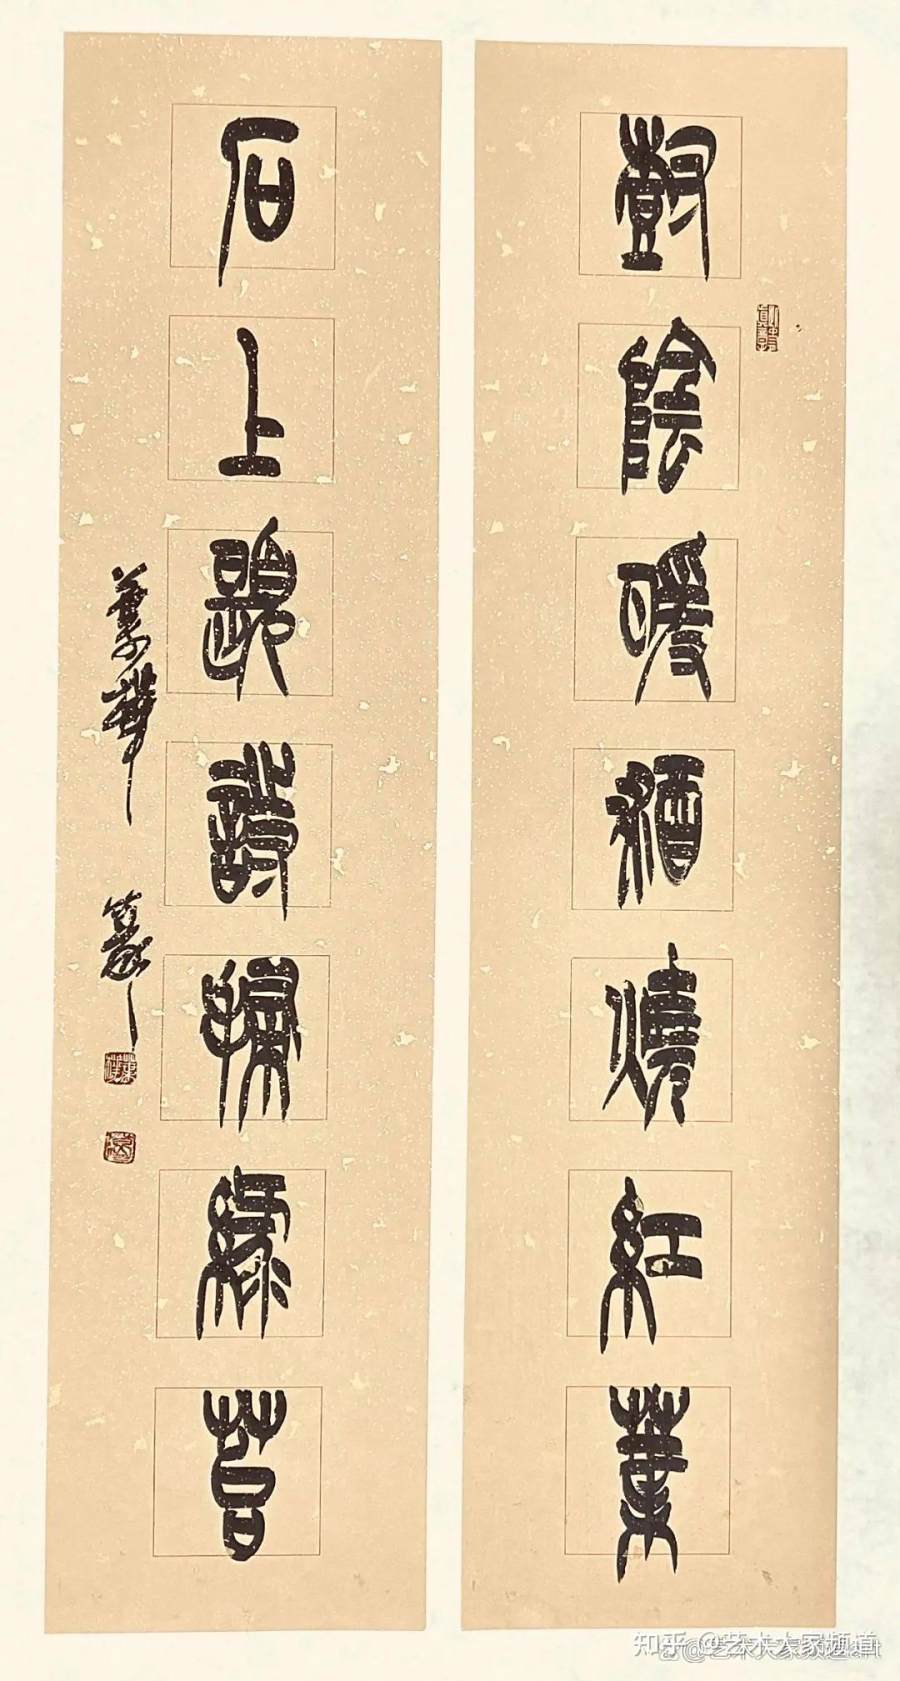 陰暖酒燒紅葉
石上題詩掃綠苔
篆
知乎 @艺术大家频道